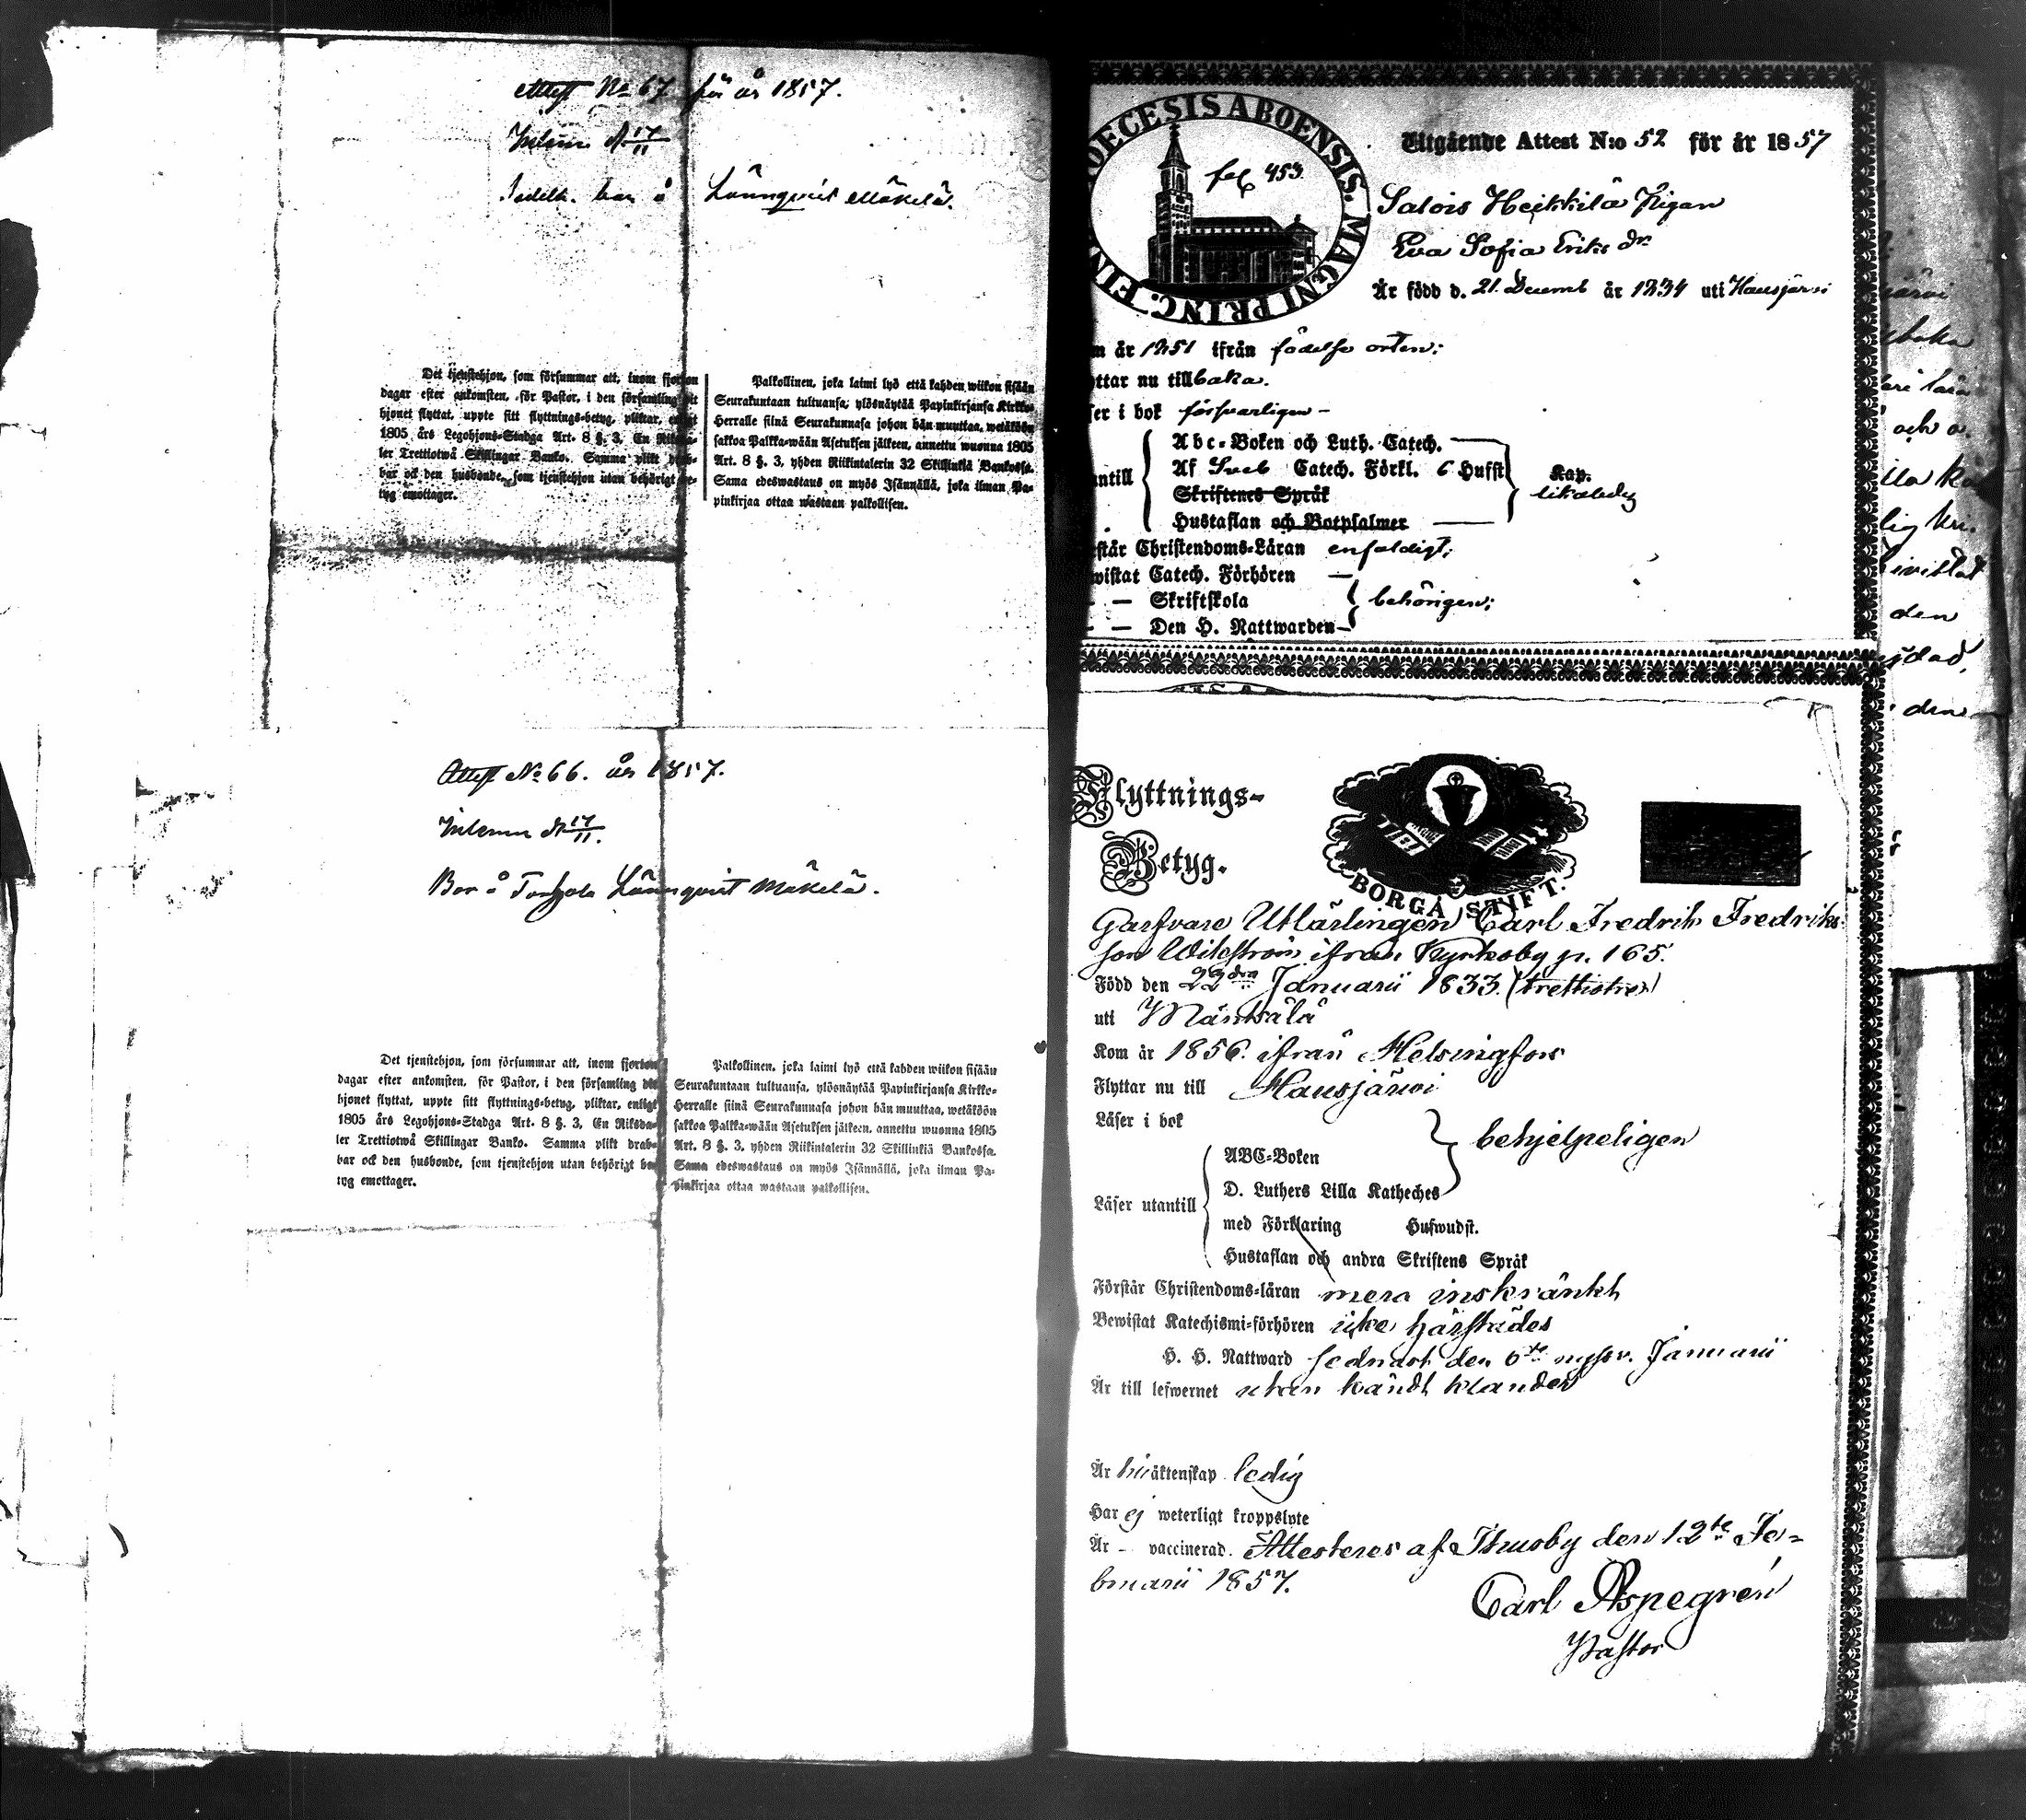 Attest No 67 för år 1857.
Inlemn. d. 17/11
bor å Lönnqvist Mäkelä.
Det tjenstehjon, som försummar att, inom fjorton
dagar efter ankomsten, för Pastor, i den församling dit
hjonet flyttat, uppte sitt flyttnings-betyg, pliktar, enligt
1805 års Legohjons-Stadga Art. 8 §. 3, En Riksda-
ler Trettiotwå Skillingar Banko. Samma plikt drab-
bar ock den husbonde, som tjenstehjon utan behörigt be-
tyg emottager.
Palkollinen, joka laimi lyö että kahden wiikon sisään
Seurakuntaan tultuansa, ylösnäytää Papinkirjansa Kirkko-
Herralle siinä Seurakunnasa johon hän muuttaa, wetäköön
sakkoa Palkka-wään Asetuksen jälkeen, annettu wuonna 1805
Art. 8 §. 3, yhden Riikintalerin 32 Skillinkiä Bankossa.
Sama edeswastaus on myös Isännällä, joka ilman Pa-
pinkirjaa ottaa wastaan palkollisen.
Attest No 66. år 1857.
Inlemn d. 17/11.
Bor å Lönnqvist Mäkelä.
Det tjenstehjon, som försummar att, inom fjorton
dagar efter ankomsten, för Pastor, i den församling dit
hjonet flyttat, uppte sitt flyttnings-betyg, pliktar, enligt
1805 års Legohjons-Stadga Art. 8 §. 3, En Riksda-
ler Trettiotwå Skillingar Banko. Samma plikt drab-
bar ock den husbonde, som tjenstehjon utan behörigt be-
tyg emottager.
Palkollinen, joka laimi lyö että kahden wiikon sisään
Seurakuntaan tultuansa, ylösnäytää Papinkirjansa Kirkko-
Herralle siinä Seurakunnasa johon hän muuttaa, wetäköön
sakkoa Palkka-wään Asetuksen jälkeen, annettu wuonna 1805
Art. 8 §. 3, yhden Riikintalerin 32 Skillinkiä Bankossa.
Sama edeswastaus on myös Isännällä, joka ilman Pa-
pinkirjaa ottaa wastaan palkollisen.
DECESIS ABOENSIS. MAGNI PRINC. FIN
453.
Utgående Attest N:o 52 för år 1857
Salois Heikkilä Pigan
Eva Sofia Eriks dr
Är född d. 21 Decemb år 1834 uti Hausjärvi
m år 1851 ifrån födelse orten;
yttar nu till baka.
ser i bok försvarligen -
antill
Abc-Boken och Luth. Catech.
Af Sveb Catech. Förkl. 6 Hufst
Kap.
Skriftenes Språk
Hustaflan och Botpsalmer
rstår Christendoms-Läran enfaldigt;
wistat Catech. Förhören —
— Skriftskola behörigen;
— Den H. Nattwarden —
Flyttnings-
Betyg.
BORGÅ STIFT.
Garfvare Utlärlingen Carl Fredrik Fredriks
son Wikström ifrån Kyrkoby p. 165.
Född den 22dra Januarii 1833. (trettiotre)
uti Mäntsälä
Kom år 1856. ifrån Helsingfors
Flyttar nu till Hausjärvi
Läser i bok
behjelpeligen
Läser utantill
ABC-Boken
D. Luthers Lilla Katheches
med Förklaring Hufwudst.
Hustaflan och andra Skriftens Språk
Förstår Christendoms-läran mera inskränkt
Bewistat Katechismi-förhören icke härstädes
H. H. Nattward sednast den 6te Januarii
Är till lefwernet utan kändt klander
Är till äktenskap ledig
Har ej weterligt kroppslyte
Är - vaccinerad. Attesteras af Thusby den 12te Fe-
bruarii 1857.
Carl Aspegrén
Pastor
och
den
den